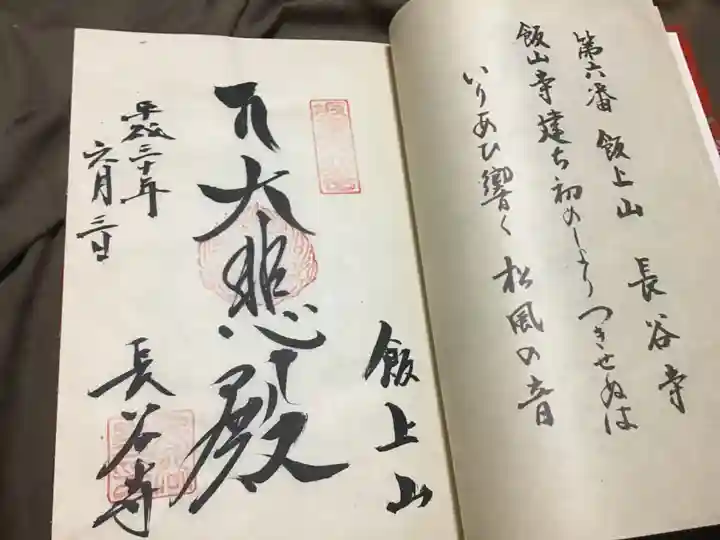 第六番 飯上山 長谷寺
飯山寺建ち初めしより つきせぬは
いりあひ響く 松風の音
飯上山
大悲殿
長谷寺
平成三十年
六月三日